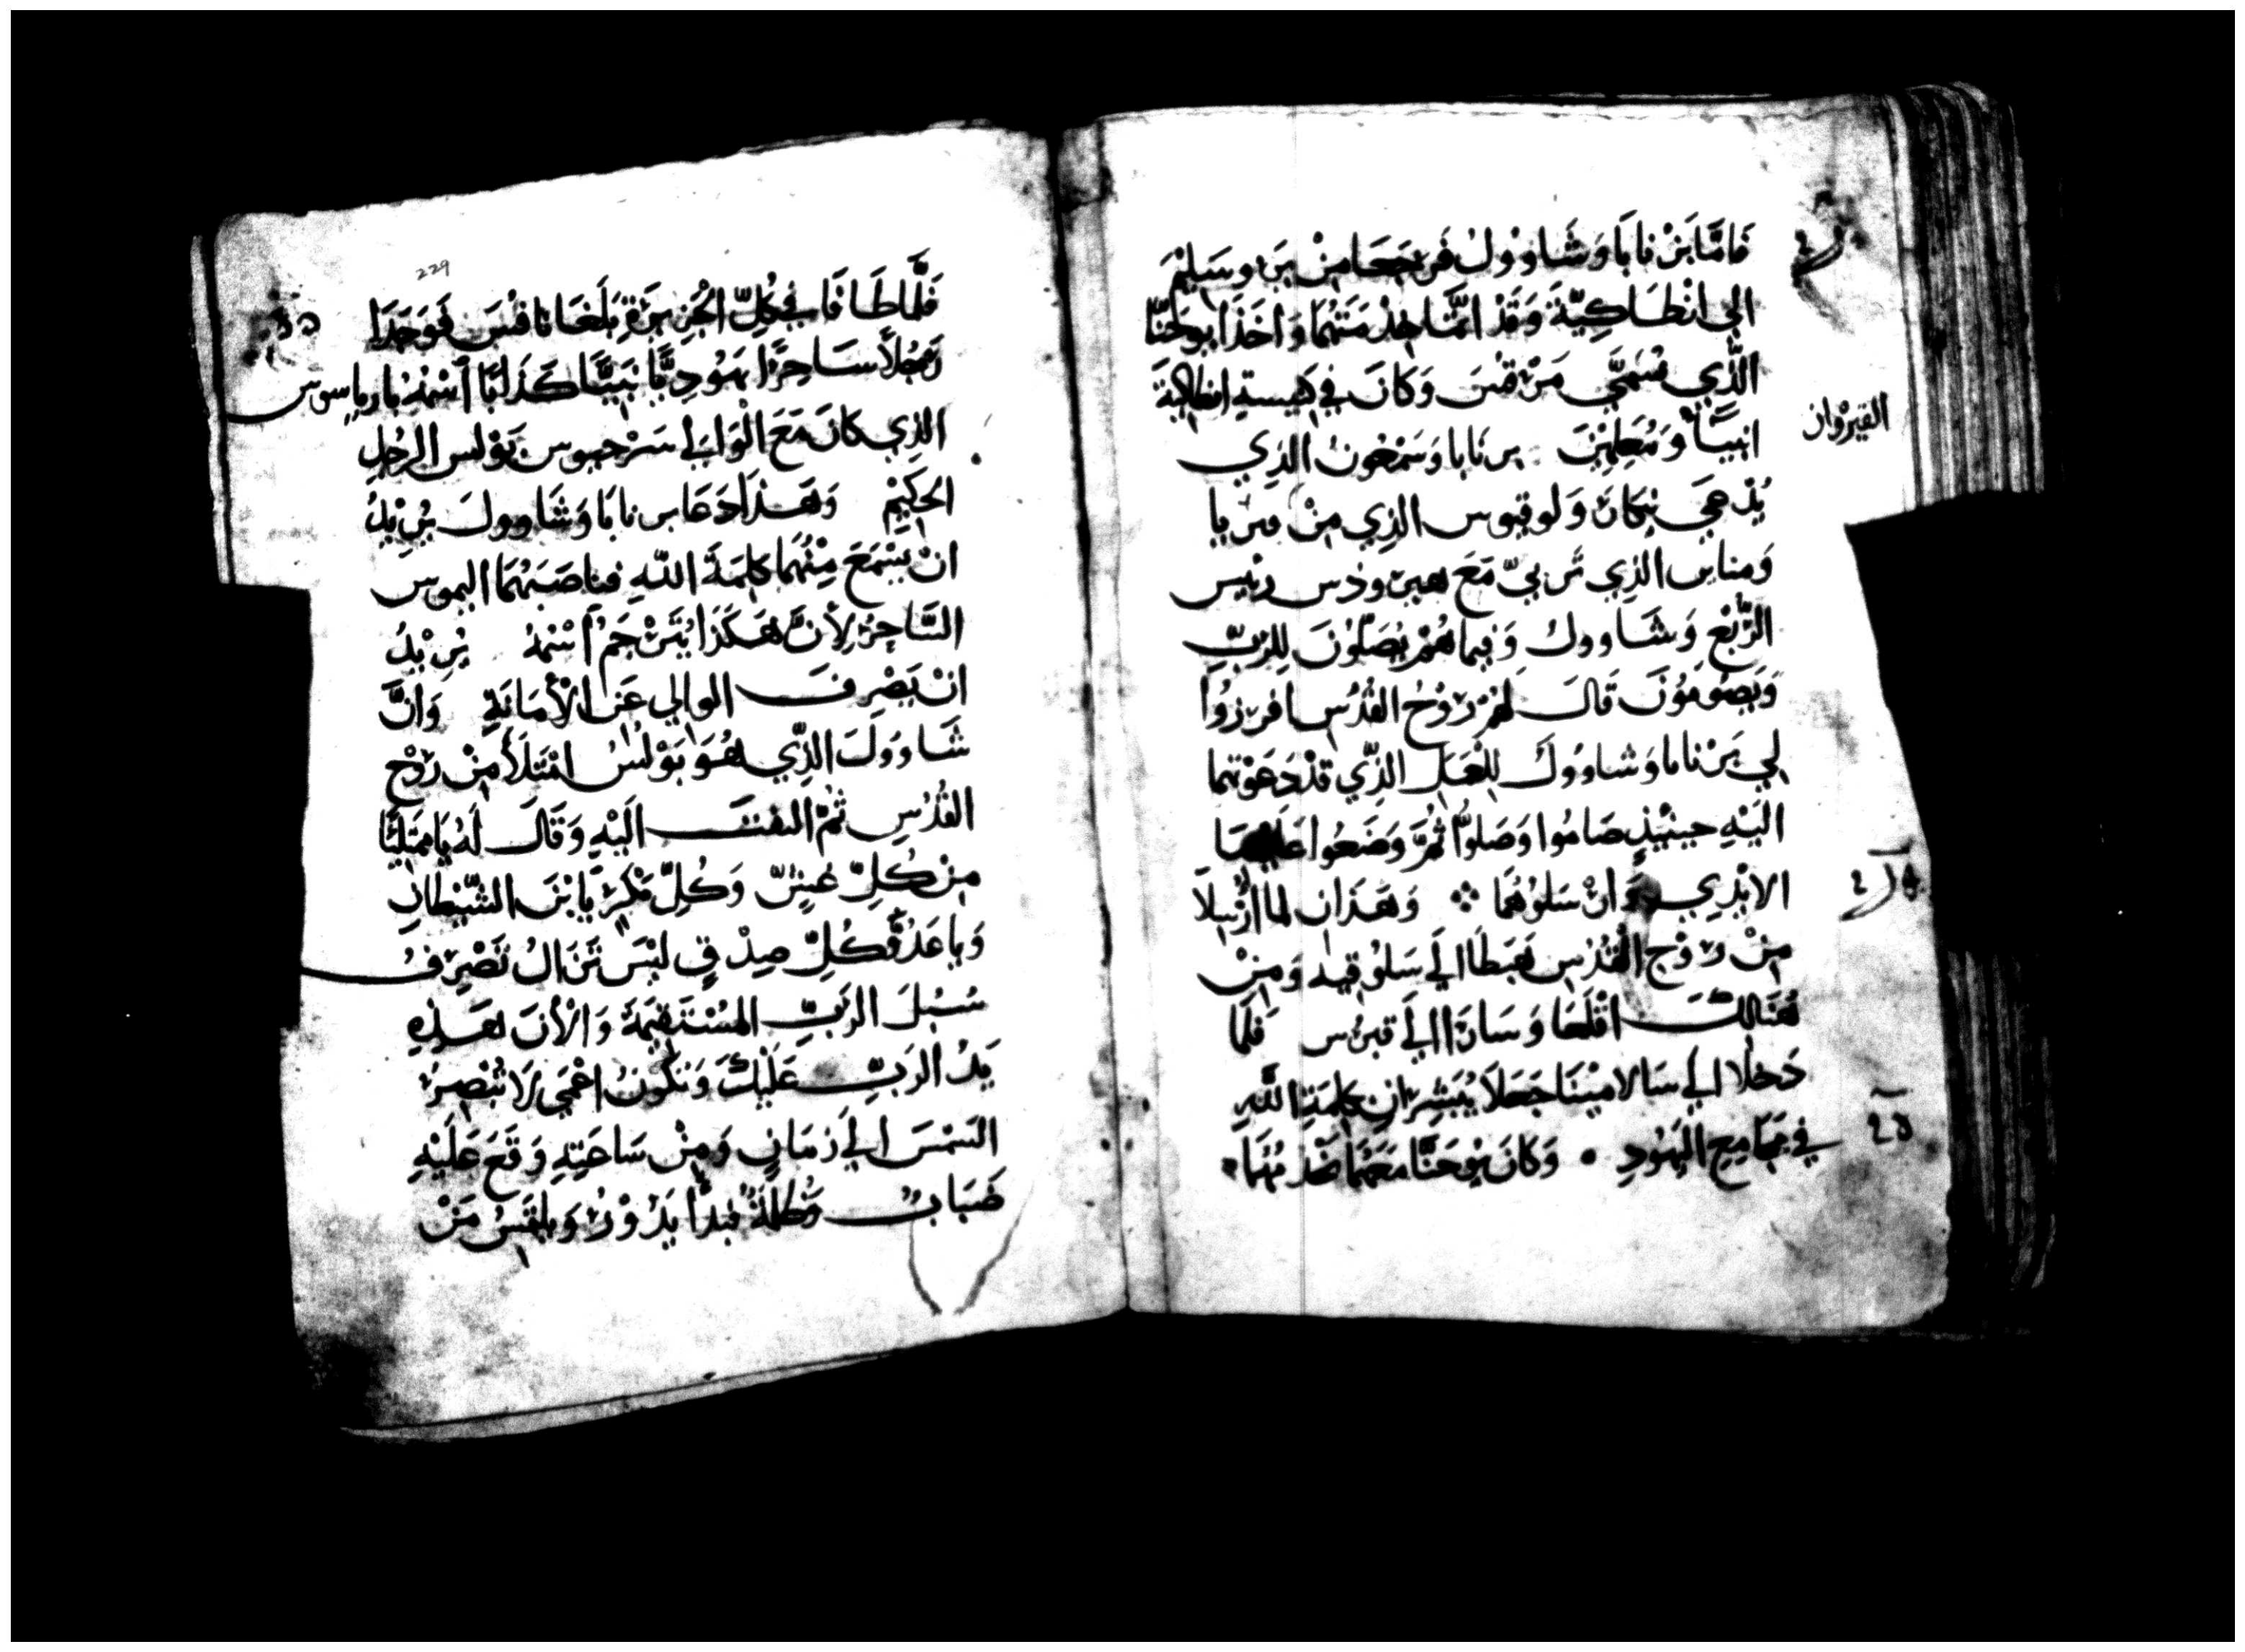 فَامَّا بَرْنابَا وَشَاوُوْلُ فَرَجَعَا مِنْ يَرُوسَلِيْمَ
الي انْطَاكِيَّةَ وَقَدْ اتَمَّا خِدْمَتَهُمَا وَاخَذَا يُوحَنَّا
الَّذِي يُسَمَّي مَرْقُسَ وَكَانَ فِي كَنِيسةِ انطاكيةَ
انبيَّاءُ وَمُعَلِّمِيْنَ برنابا وَسَمْعُونُ الذِي
يُدْعَي نِيكانَ وَلوقيوس الذِي مِنْ
القيرْوان
وَمناين الذِي تَربيّ مَعَ هيرودس رئيس
الرُّبْعِ وَشَاوولُ وَفيما هُمْ يُصَلُّوْنَ لِلرَّبِّ
وَيَصُومُوْنَ قَالَ لَهُمْ رُوْحُ القُدُسِ افرزوُا
لِي بَرْنابا وَشاوُوُلَ لِلْعَمَلِ الذِّي قدْ دَعَوْتهما
الَيْهِ حِينَيْذٍ صَامُوا وَصَلوُّا ثُمَّ وَضَعُوا عَلَيهما
الايْدِي وَارْسَلوُهُمَا وَهَذَانِ لما ارْسِلَا
مِنْ رُوْحِ الْقُدُسِ هَبَطَا الَي سَلوُقيه وَمِنْ
هُنَالِكَ اقْلَعَا وَسَارَا الَي قبرُس فَلمَّا
دَخَلَا الي سَالاميْنَا جَعَلَا يُبَشِّرَانِ بِكلِمَةِ اللَّهِ
في مَجَامِعِ اليَهُودِ وَكانَ يُوحَنَّا مَعَهُمَا يَخْدمُهُمَا
229
فَلَّما طَافَا فِي كُلِّ الْجَزِيرَةِ بَلَغَا بَافُسَ فَوَجَدَا
رَجُلاً سَاحِرًا يَهُودِيًّا نَبِيًّا كَذَّابًا اسْمُهُ بارياسِوس
الذِي كانَ مَعَ الْوَاليِ سَرْجيوس بَوْلس الرجُلِ
الحكِيْمِ وَهَذَا دَعَا برنابَا وَشَاوولَ يُرِيْدُ
انْ يَسْمَعَ مِنْهُمَا كَلِمَةَ اللَّهِ فناصَبَهُمَا اليموس
السَّاحِرُ لِأنَّ هَكَذَا يُتَرْجَمُ اسْمُهُ يُرِيْدُ
انْ يَصْرِفَ الوالي عَنِ الْأَمَانَةِ وَانَّ
شَاووَلَ الذِّي هُوَ بَوْلُسُ امْتَلَأَ مِنْ رُوْحِ
القُدُسِ ثُمَّ التفتَ الَيْهِ وَقَالَ لَهُ يَا مُمتَلِيًا
مِنْ كُلِّ غِشٍّ وَكُلِّ مَكْرٍ يَا ابْنَ الشَّيْطانِ
وَيا عَدُوَّ كُلِّ صِدْقٍ لَيْسَ تَزَالُ تَصْرِفُ
سُبُلَ الرَبِّ المُسْتَقِيمَةَ وَالْأنَ هَذِهِ
يَدُ الرَبِّ عَلَيْكَ وَتكُونُ اعْمَي لَا تُبْصِرُ
الشمْسَ الَي زمَانٍ وَمِنْ سَاعَتِهِ وَقَعَ عَلَيْهِ
ضَبَابٌ وَظلمَةٌ فبَدأَ يَدُوْرُ وَيلتَمِسُ مَنْ